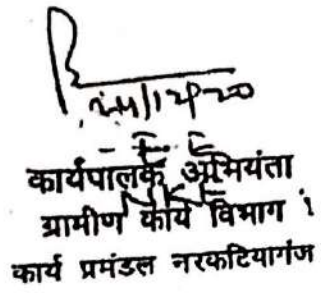 कार्यपालक अभियंता
ग्रामीण कार्य विभाग
कार्य प्रमंडल नरकटियागंज